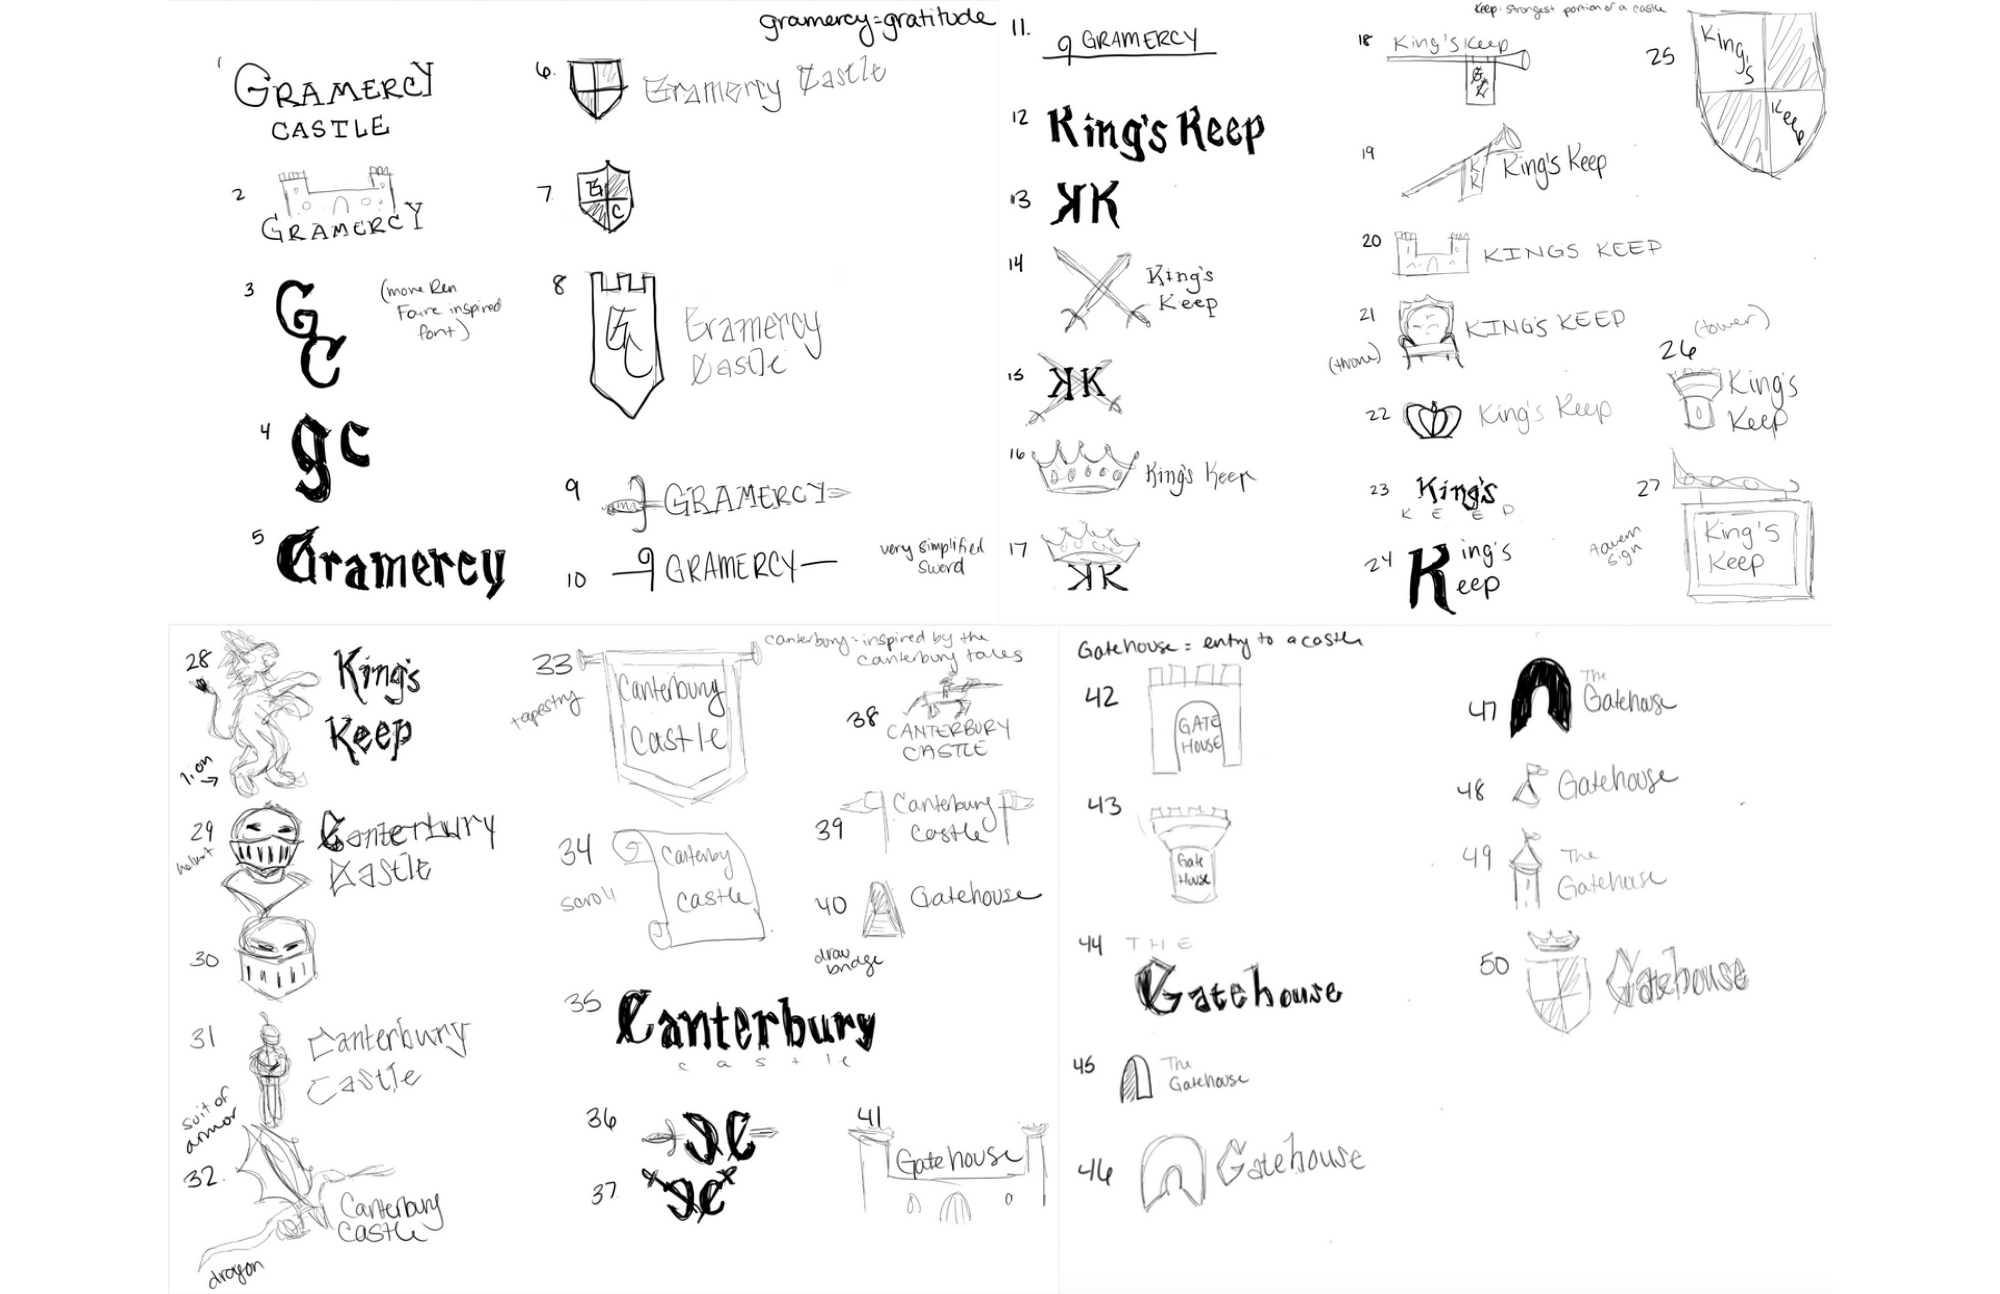 gramercy=gratitude
1
GRAMERCY
CASTLE
2
GRAMERCY
3
G
C
(more Ren
Faire inspired
font)
4
gc
5
Gramercy
6.
Gramercy Castle
7.
G
C
8
G
C
Gramercy
Castle
9
GRAMERCY
10
GRAMERCY
very simplified
sword
11.
GRAMERCY
12
King's Keep
13
KK
14
King's
Keep
15
KK
16
King's Keep
17
KK
Keep: strongest portion of a castle
18
King's Keep
19
K
K
King's Keep
20
KINGS KEEP
21
(throne)
KING'S KEEP
22
King's Keep
23
King's
KEEP
24
King's
Keep
25
King's
Keep
(tower)
26
King's
Keep
27
tavern
sign
King's
Keep
28
lion
King's
Keep
29
helmet
Canterbury
Castle
30
31
suit of
armor
Canterbury
Castle
32.
Canterbury
Castle
dragon
canterbury=inspired by the
canterbury tales
33
tapestry
Canterbury
Castle
34
scroll
Canterby
castle
35
Canterbury
castle
36
CC
37.
CC
38
CANTERBURY
CASTLE
39
Canterbury
Castle
40
Gatehouse
draw
bridge
41
Gatehouse
Gatehouse = entry to a castle
42
GATE
HOUSE
43
Gate
House
44
THE
Gatehouse
45
The
Gatehouse
46
Gatehouse
47
The
Gatehouse
48
Gatehouse
49
The
Gatehouse
50
Gatehouse